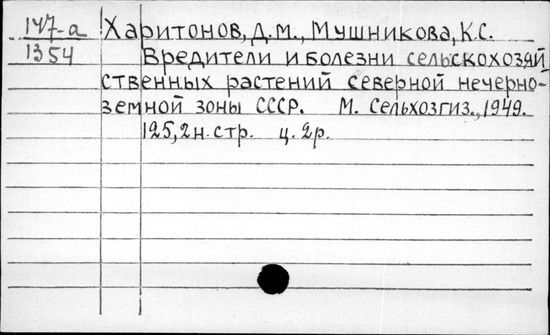 147-а Харитонов, Д.М., Мушникова, К.С.
1354 Вредители и болезни сельскохозяй
ственных растений северной нечерно-
земной зоны СССР. М. Сельхозгиз., 1949.
125,2н.стр. ц. 2р.